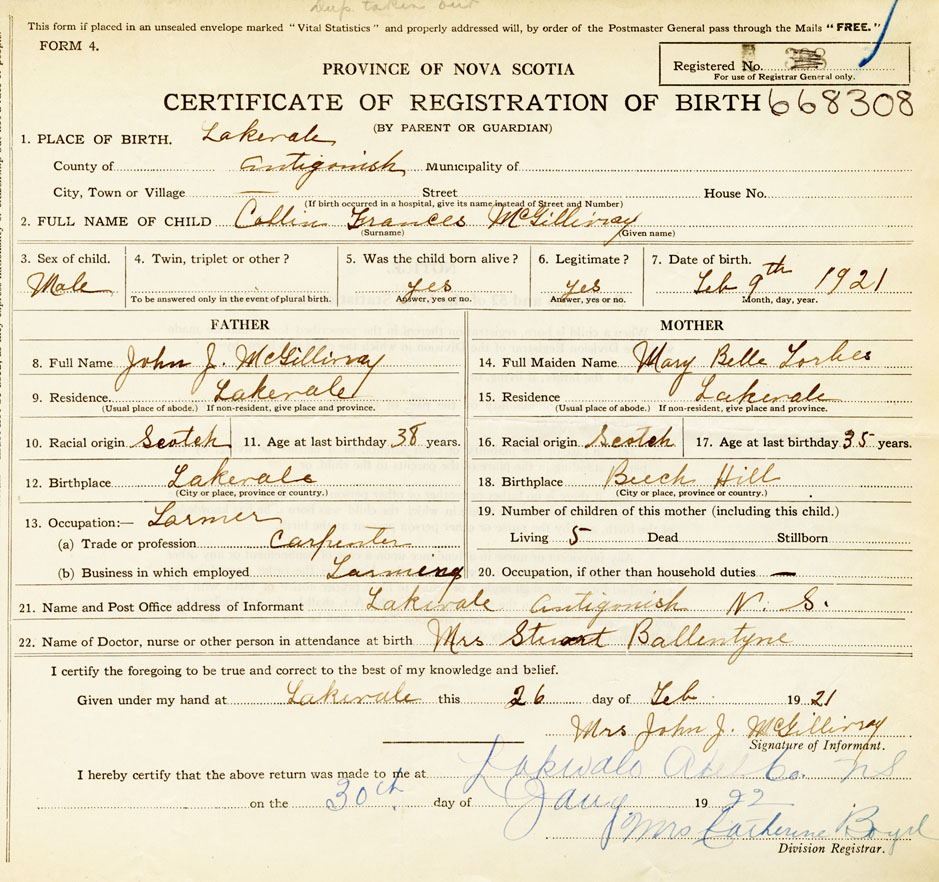 This form if placed in an unsealed envelope marked "Vital Statistics" and properly addressed will, by order of the Postmaster General pass through the Mails "FREE."
FORM 4.
Registered No.
For use of Registrar General only.
PROVINCE OF NOVA SCOTIA
CERTIFICATE OF REGISTRATION OF BIRTH 668308
(BY PARENT OR GUARDIAN)
1. PLACE OF BIRTH. Lakevale
County of Antigonish Municipality of
City, Town or Village — Street House No.
(If birth occurred in a hospital, give its name instead of Street and Number)
2. FULL NAME OF CHILD Collin Frances McGillivray
(Surname) (Given name)
3. Sex of child. 4. Twin, triplet or other? 5. Was the child born alive? 6. Legitimate? 7. Date of birth.
Male yes yes Feb 9th 1921
To be answered only in the event of plural birth. Answer, yes or no. Answer, yes or no. Month, day, year.
FATHER MOTHER
8. Full Name John J. McGillivray 14. Full Maiden Name Mary Belle Forbes
9. Residence. Lakevale 15. Residence Lakevale
(Usual place of abode.) If non-resident, give place and province. (Usual place of abode.) If non-resident, give place and province.
10. Racial origin Scotch 11. Age at last birthday 38 years. 16. Racial origin Scotch 17. Age at last birthday 35 years.
12. Birthplace Lakevale 18. Birthplace Beech Hill
(City or place, province or country.) (City or place, province or country.)
13. Occupation:— Farmer 19. Number of children of this mother (including this child.)
(a) Trade or profession Carpenter Living 5 Dead Stillborn
(b) Business in which employed Farming 20. Occupation, if other than household duties —
21. Name and Post Office address of Informant Lakevale Antigonish N. S.
22. Name of Doctor, nurse or other person in attendance at birth Mrs Stuart Ballentyne
I certify the foregoing to be true and correct to the best of my knowledge and belief.
Given under my hand at Lakevale this 26 day of Feb 1921
Mrs John J. McGillivray
Signature of Informant.
I hereby certify that the above return was made to me at Lakevale Co. NS
on the 30th day of 1922
Mrs Catherine Boyd
Division Registrar.